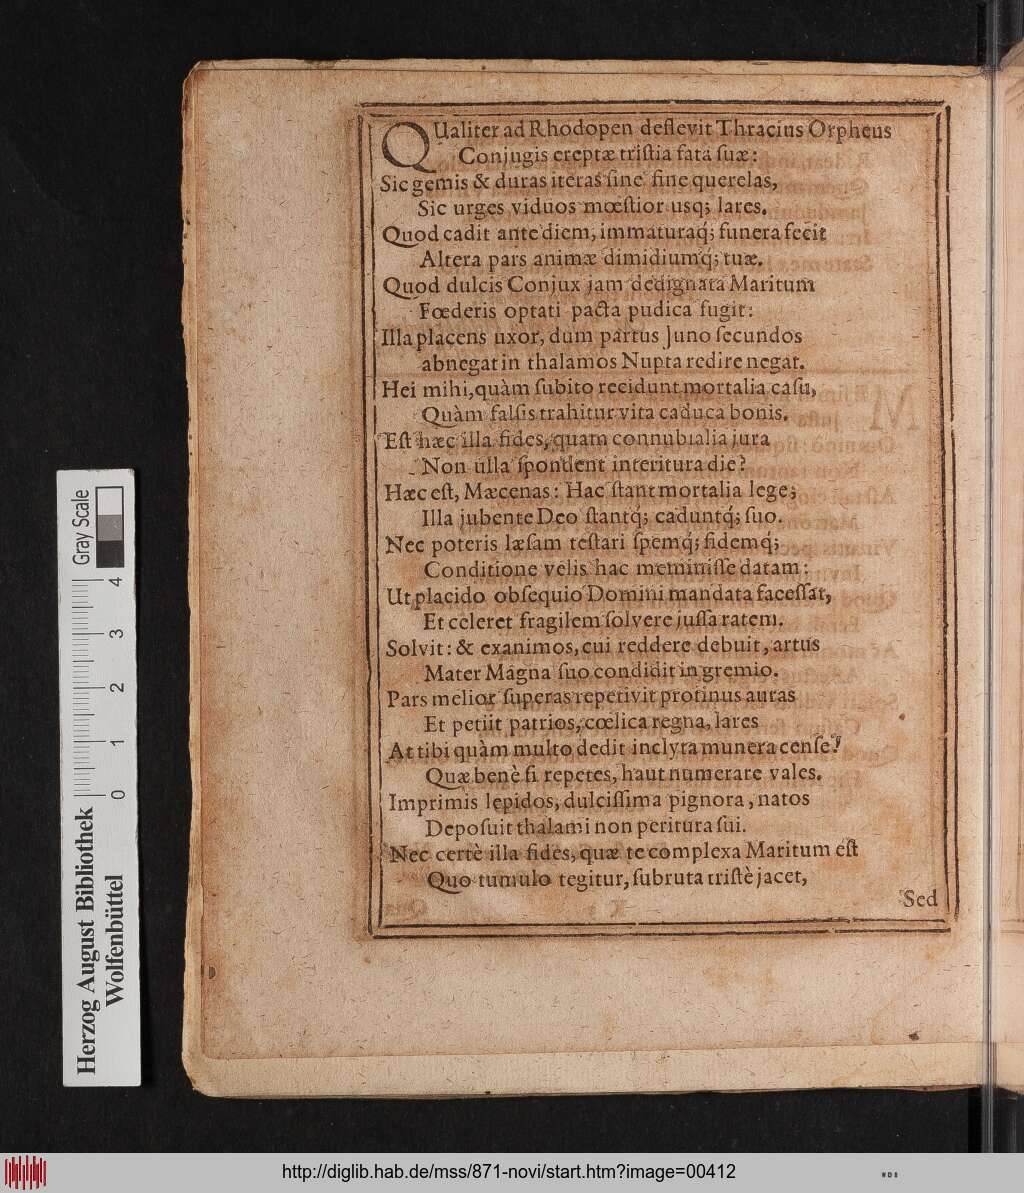 QUaliter ad Rhodopen deflevit Thracius Orpheus
Conjugis ereptæ triſtia fata ſuæ:
Sic gemis & duras iteras ſine fine querelas,
Sic urges viduos mœſtior usq; lares.
Quod cadit ante diem, immaturaq́; funera fecit
Altera pars animæ dimidiumq́; tuæ.
Quod dulcis Conjux jam dedignata Maritum
Fœderis optati pacta pudica fugit:
Illa placens uxor, dum partus Juno ſecundos
abnegat in thalamos Nupta redire negat.
Hei mihi, quàm ſubito recidunt mortalia caſu,
Quàm falſis trahitur vita caduca bonis.
Eſt hæc illa fides, quam connubialia jura
Non ulla ſpondent interitura die?
Hæc eſt, Mæcenas: Hac ſtant mortalia lege;
Illa jubente Deo ſtantq́; caduntq́; ſuo.
Nec poteris læſam teſtari ſpemq́; fidemq́;
Conditione velis hac meminiſſe datam:
Ut placido obſequio Domini mandata faceſſat,
Et celeret fragilem ſolvere juſſa ratem.
Solvit: & exanimos, cui reddere debuit, artus
Mater Magna ſuo condidit in gremio.
Pars melior ſuperas repetivit protinus auras
Et petiit patrios, cœlica regna, lares
At tibi quàm multo dedit inclyta munera cenſe!
Quæ benè ſi repetes, haut numerare vales.
Imprimis lepidos, dulciſſima pignora, natos
Depoſuit thalami non peritura ſui.
Nec certè illa fides, quæ te complexa Maritum eſt
Quo tumulo tegitur, ſubruta triſtè jacet,
Sed
Gray Scale
4
3
2
1
0
Herzog August Bibliothek
Wolfenbüttel
http://diglib.hab.de/mss/871-novi/start.htm?image=00412